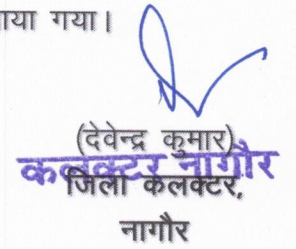 ाया गया।
(देवेन्द्र कुमार)
कलक्टर नागौर
जिला कलक्टर,
नागौर